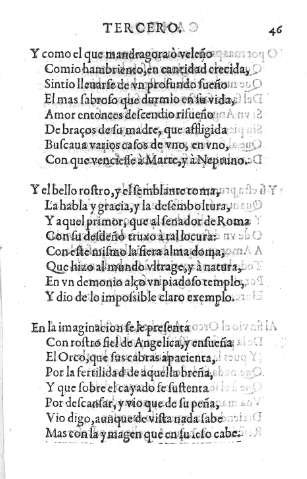 TERCERO. 46
Y como el que mandragora ò veleño
Comio hambriento, en cantidad crecida,
Sintio lleuarse de vn profundo sueño
El mas sabroso que durmio en su vida,
Amor entonces descendio risueño
De braços de su madre, que afligida
Buscaua varios casos de vno, en vno,
Con que venciesse à Marte, y à Neptuno.
Y el bello rostro, y el semblante toma,
La habla y gracia, y la desemboltura,
Y aquel primor, que al senador de Roma
Con su desdeño truxo à tal locura:
Con este mismo la fiera alma doma,
Que hizo al mundo vltrage, y à natura,
En vn demonio alço vn piadoso templo,
Y dio de lo impossible claro exemplo.
En la imaginacion se le presenta
Con rostro fiel de Angelica, y enseña
El Orco, que sus cabras apacienta,
Por la fertilidad de aquella breña,
Y que sobre el cayado se sustenta
Por descansar, y vio que de su peña,
Vio digo, aunque de vista nada sabe
Mas con la ymagen que en su seso cabe.